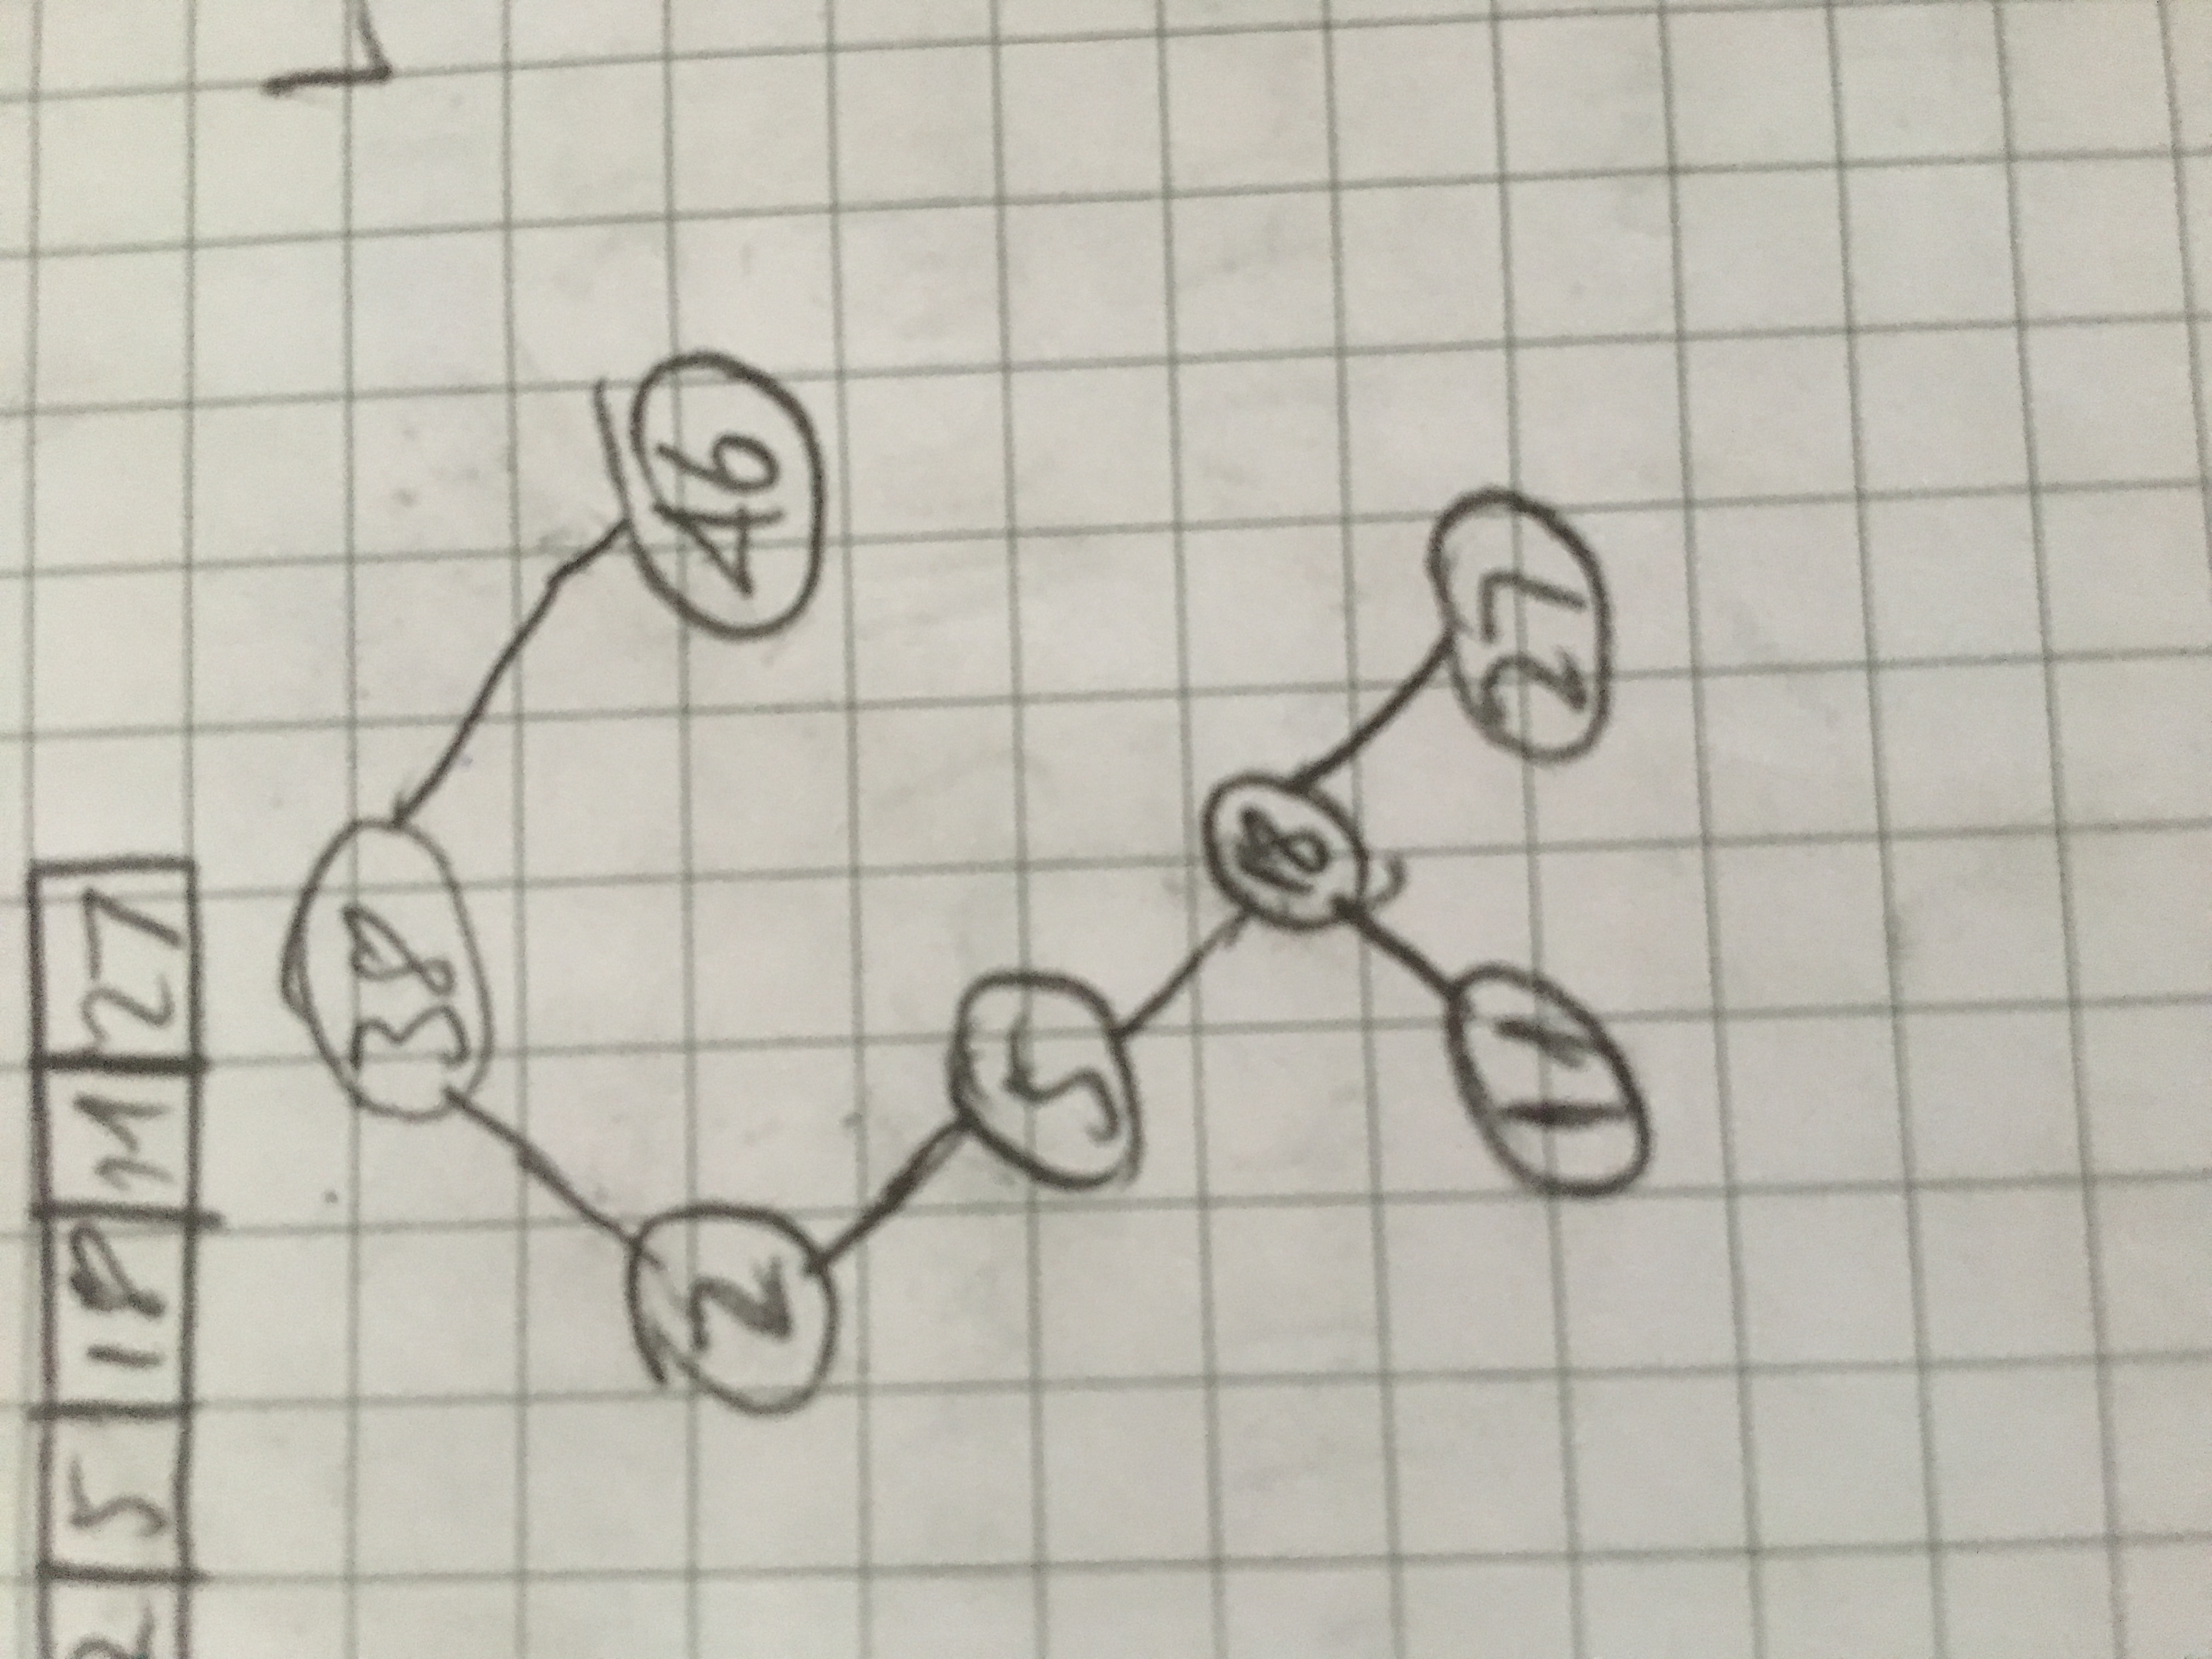 2 5 18 11 27
38
2 46
5
18
11 27